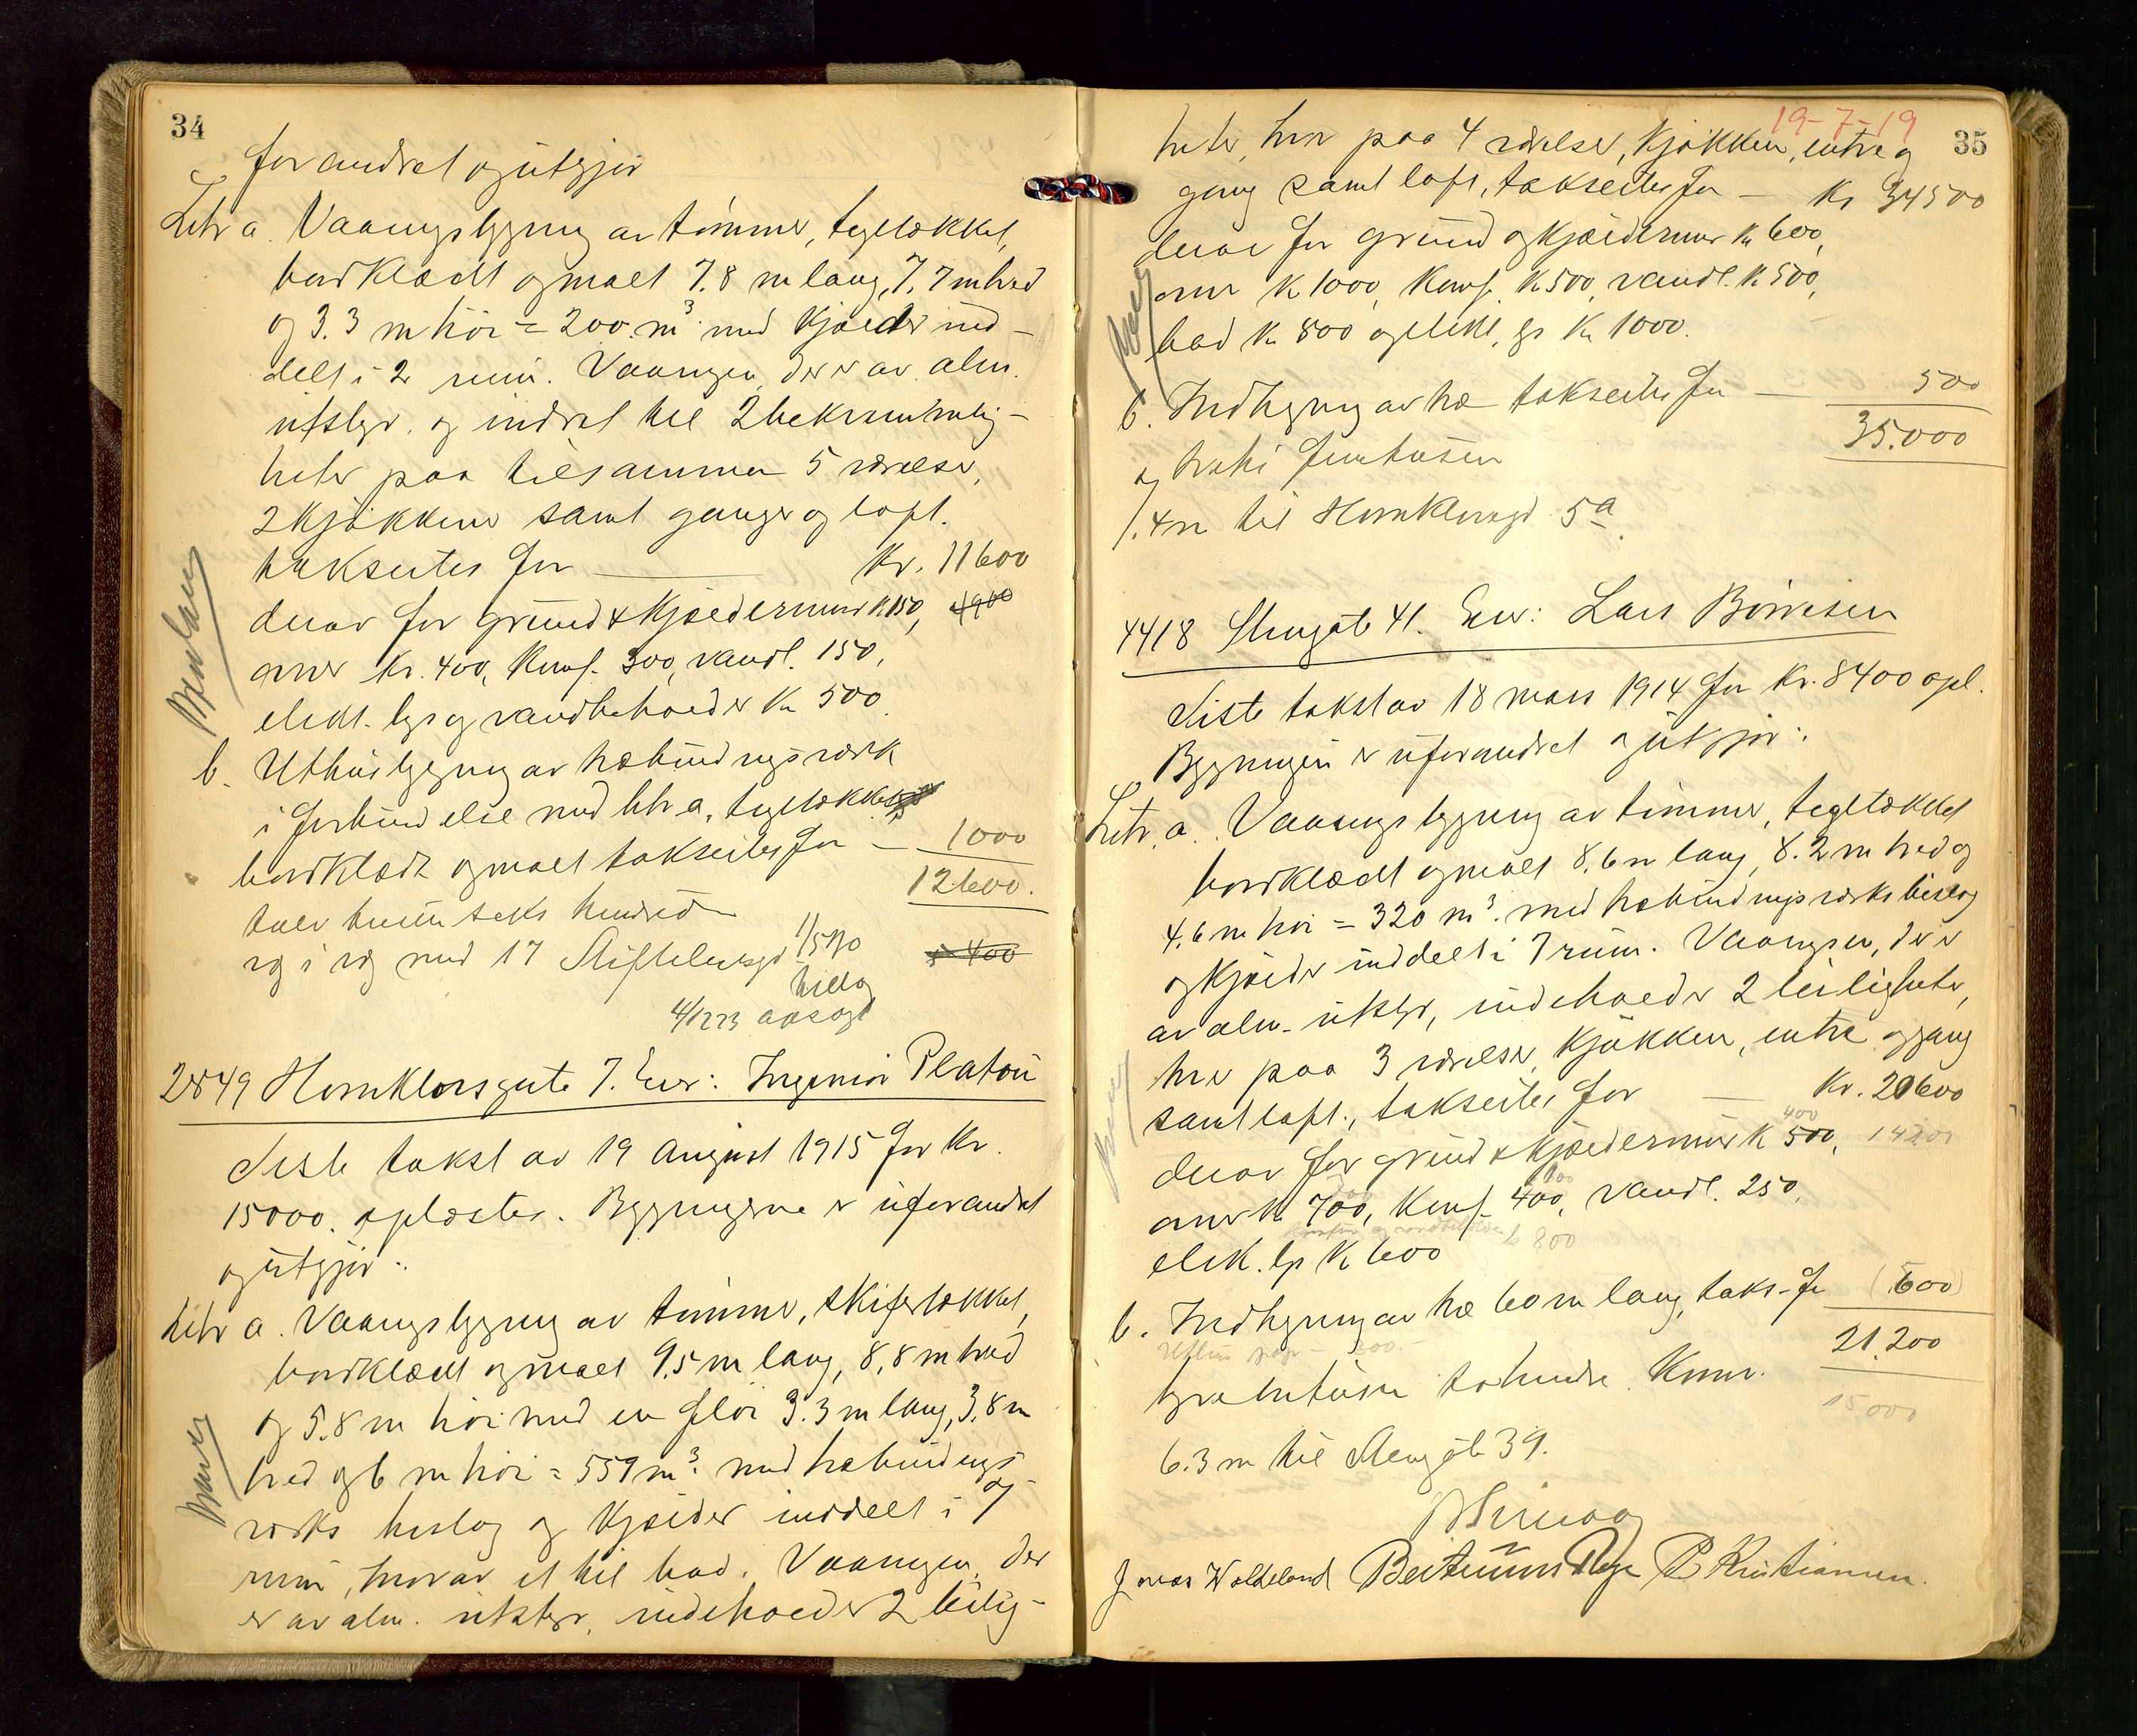 34
forandret og utgjør
Litr a. Vaaningsbygning av tømmer, tegltækket,
bordklædt og malt 7.8 m lang, 7.7 m bred
og 3.3 m høi = 200 m³ med kjælder ind-
delt i 2 rum. Vaaningen, der er av alm.
utstyr, og indret til 2 bekvemmelig-
heter paa tilsammen 5 værelser,
2 kjøkkener samt ganger og loft.
takseres for Kr. 11600
derav for grund & kjældermur k 150, 4900
ovner kr. 400, komf. 300, vandl. 150,
elekt. lys og vandbeholder Kr 500.
b. Uthusbygning av træbindingsværk
i forbindelse med litr a, tegltækket
bordklædt og malt takseres for 1000
12600.
tolv tusen seks hundrede
væg i væg med 17 Stiftelsesgt 1/5 90 5400
tillæg
4/12 23 avsagt
2849 Hornklovsgate 7. Eier: Ingeniør Platou
Siste takst av 19 August 1915 for Kr.
15000. oplæstes. Bygningerne er uforandret
og utgjør:
Litr a. Vaaningsbygning av tømmer, skifertækket,
bordklædt og malt 9.5 m lang, 8,8 m bred
og 5.8 m høi med en fløi 3.3 m lang, 3,8 m
bred og 6 m høi = 559 m³ med træbindings-
værks bislag og kjælder inddelt i 7
rum, hvorav et til bad. Vaaningen, der
er av alm. utstyr, indeholder 2 leilig-
19-7-19
35
heter, hver paa 4 værelser, kjøkken, entre og
gang samt loft, takseres for Kr 34500
derav for grund og kjældermur kr 600,
ovner k 1000, komf. k 500, vandl. k 500,
bad kr 800 og elekt. lys Kr 1000.
b. Indhegning av træ takseres for 500
35.000
og tretti femtusen
1.4 m til Hornklovsgt 5a
4418 Stengate 41. Eier: Lars Børresen
Siste takst av 18 mars 1914 for Kr. 8400 opl.
Bygningen er uforandret og utgjør:
Litr. a. Vaaningsbygning av tømmer, tegltækket
bordklædt og malt 8,6 m lang, 8.2 m bred og
4.6 m høi = 320 m³ med træbindingsværks bislag
og kjælder inddelt i 7 rum. Vaaningen, der er
av alm. utstyr, indeholder 2 leiligheter,
hver paa 3 værelser, kjøkken, entre og gang
samt loft., takseres for Kr. 20600
derav for grund & kjældermur k 500, 400 14200
ovner kr 700, komf. 400, vandl. 250,
800
elek. lys kr 600
b. Indhegning av træ 60 m lang, taks. for (600)
21.200
og en tusen tohundre Kroner.
15000
6.3 m til Stengate 39.
Jonas Wolleland P Kristiansen.